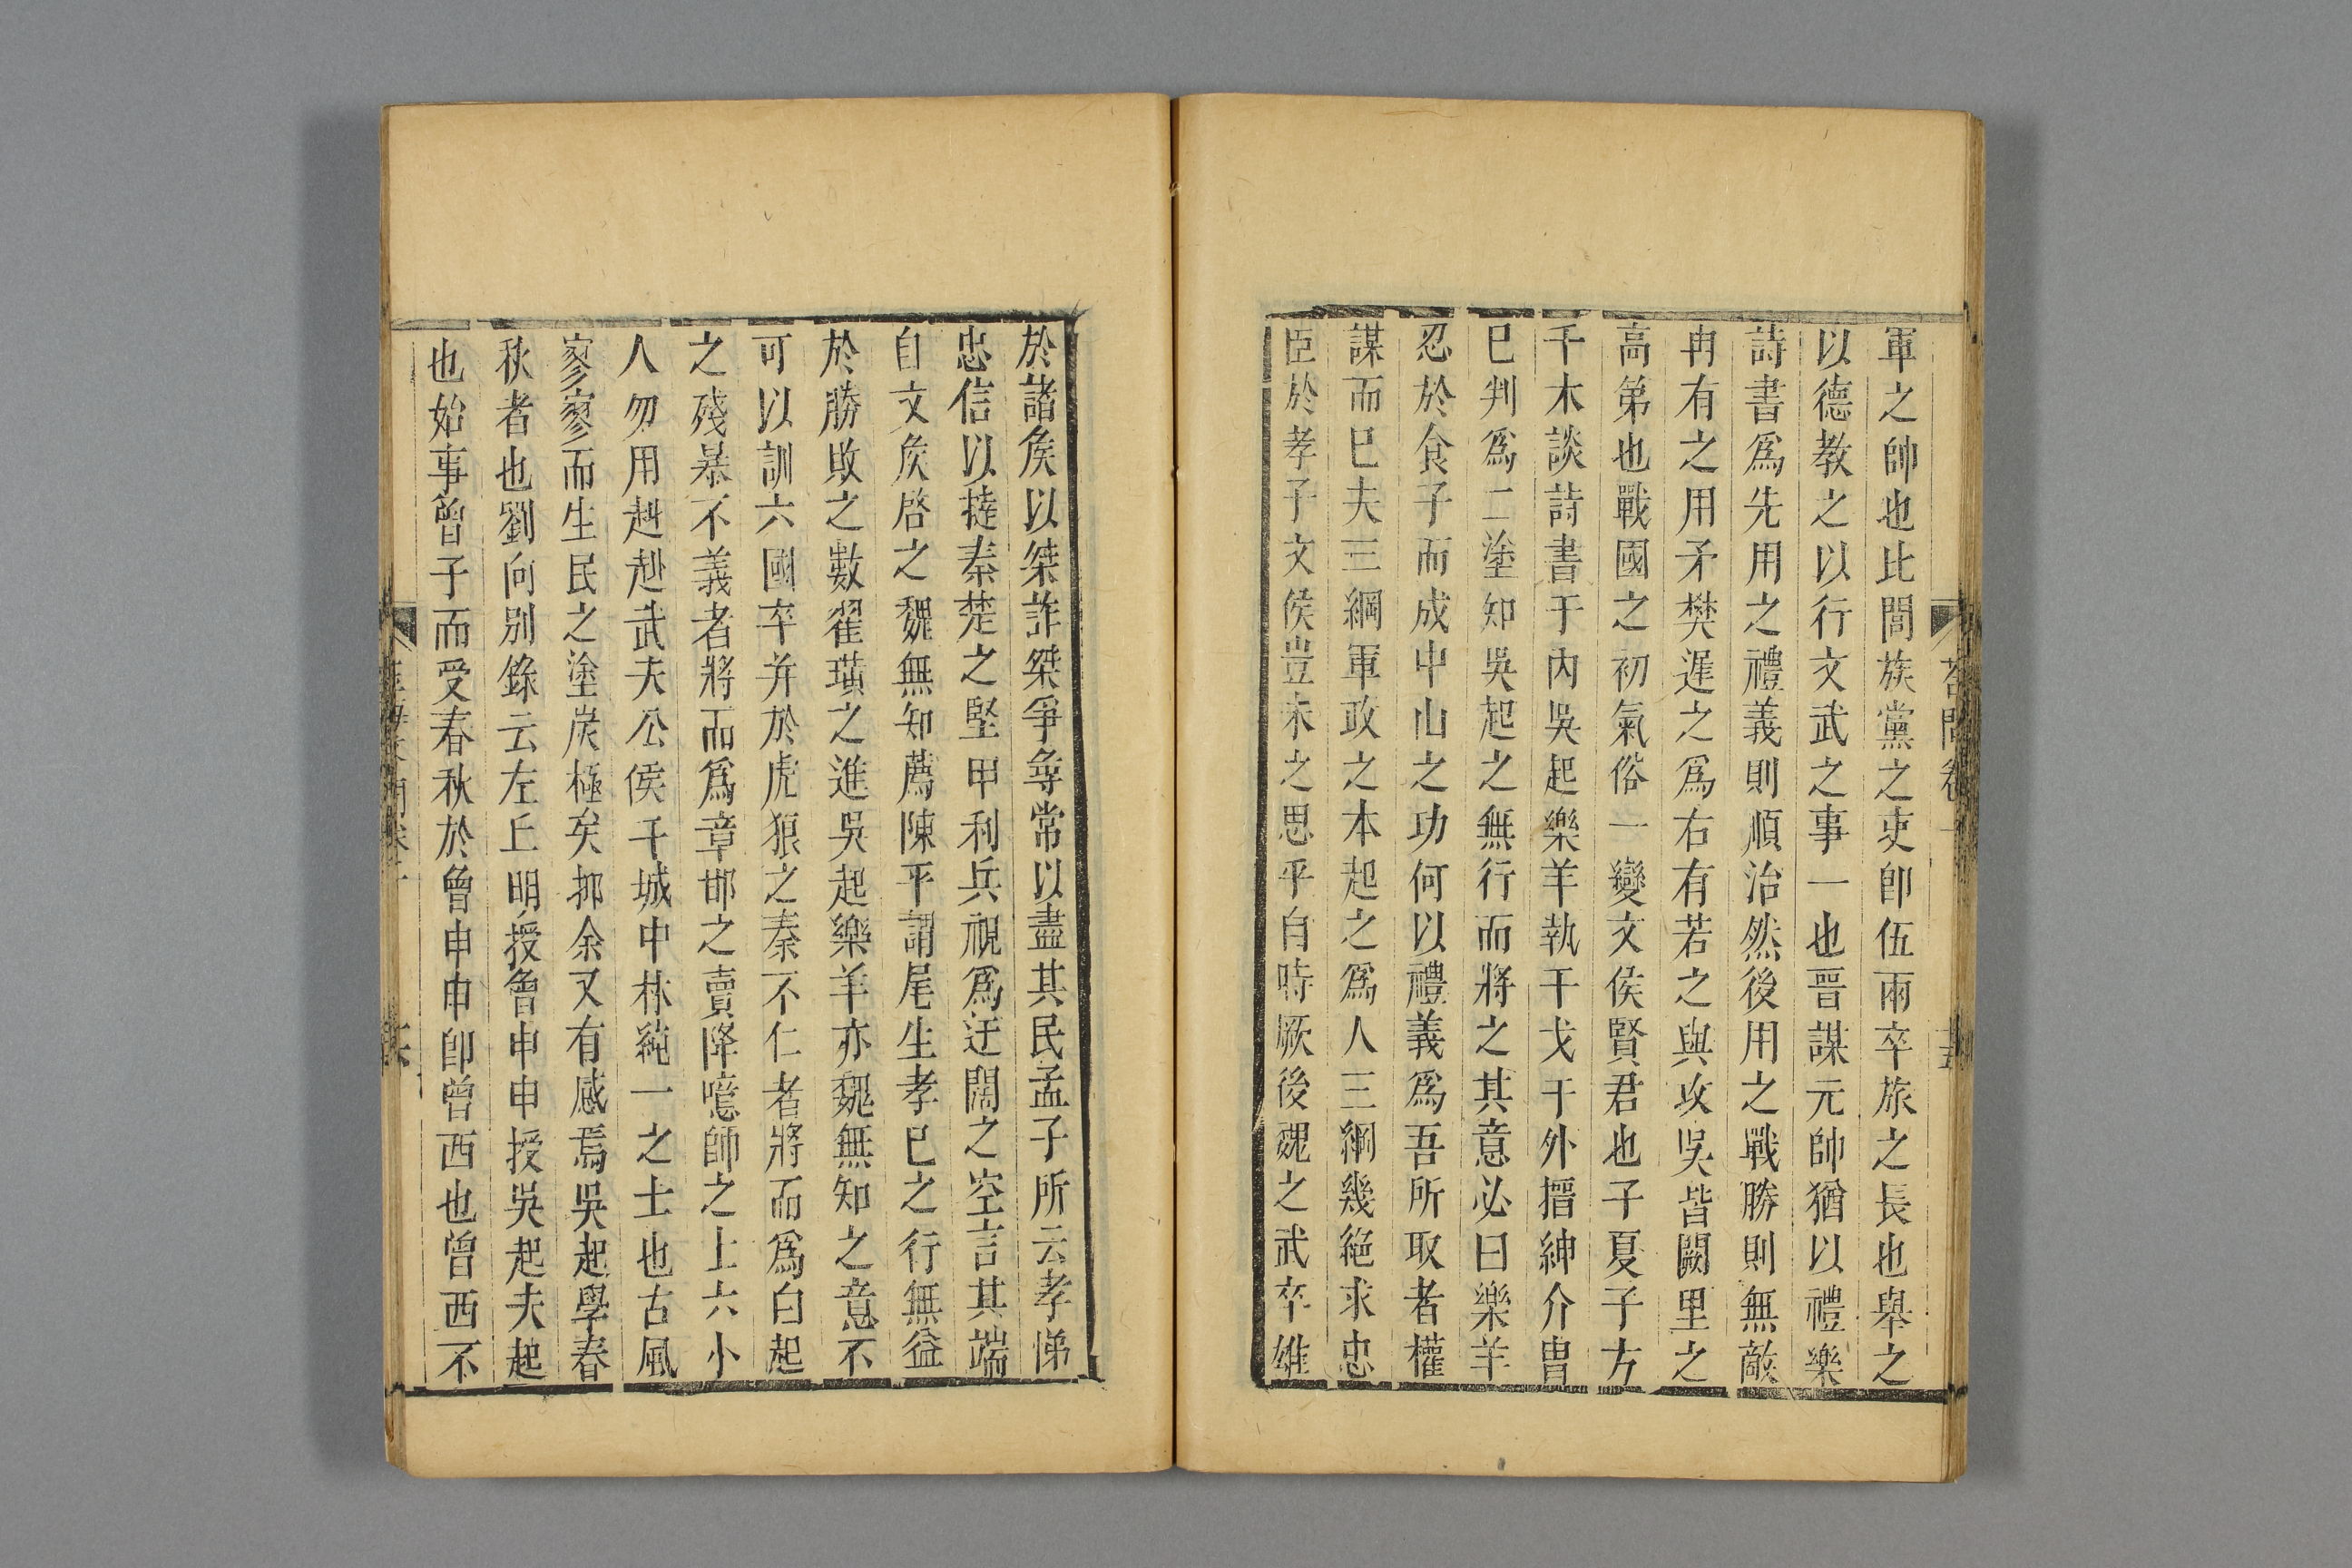 答問卷一
軍之帥也比閭族黨之吏卽伍兩卒旅之長也舉之
以德教之以行文武之事一也晉謀元帥猶以禮樂
詩書爲先用之禮義則順治然後用之戰勝則無敵
冉有之用矛樊遲之爲右有若之與攻吳皆闕里之
高弟也戰國之初氣俗一變文侯賢君也子夏子方
干木談詩書于內吳起樂羊執干戈于外搢紳介冑
已判爲二塗知吳起之無行而將之其意必曰樂羊
忍於食子而成中山之功何以禮義爲吾所取者權
謀而已夫三綱軍政之本起之爲人三綱幾絕求忠
臣於孝子文侯豈未之思乎自時厥後魏之武卒雄
於諸矦以桀詐桀爭尋常以盡其民孟子所云孝悌
忠信以撻秦楚之堅甲利兵視爲迂闊之空言其端
自文矦啓之魏無知薦陳平謂尾生孝已之行無益
於勝敗之數翟璜之進吳起樂羊亦魏無知之意不
可以訓六國卒并於虎狼之秦不仁者將而爲白起
之殘暴不義者將而爲章邯之賣降噫師之上六小
人勿用赳赳武夫公侯干城中林純一之士也古風
寥寥而生民之塗炭極矣抑余又有感焉吳起學春
秋者也劉向別錄云左丘明授曾申申授吳起夫起
也始事曾子而受春秋於曾申申卽曾西也曾西不